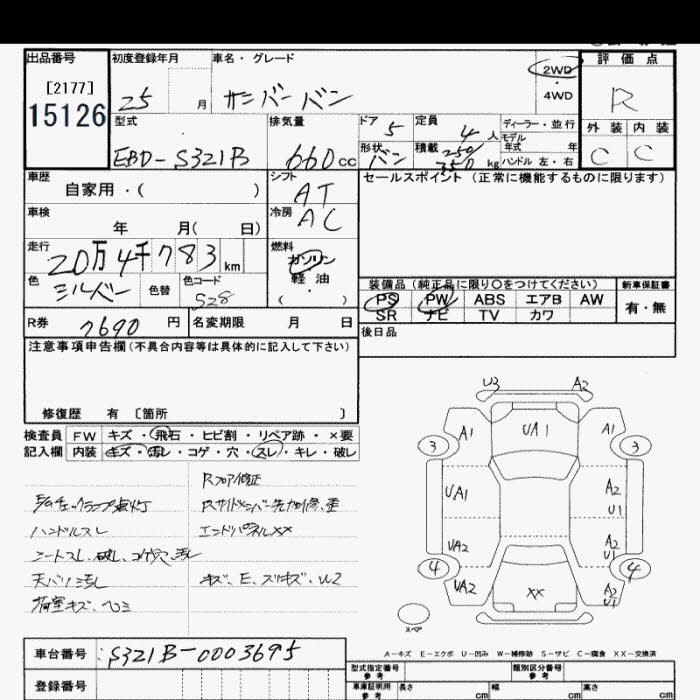 出品番号
[2177]
15126
初度登録年月
25 月
車名・グレード
サンバーバン
2WD
・
4WD
評価点
R
外装 内装
C C
型式
EBD-S321B
排気量
660cc
ドア 5
形状 バン
定員 4人
積載 250/350kg
ディーラー・並行
モデル年式 年
ハンドル 左・右
車歴
自家用・( )
シフト
AT
セールスポイント(正常に機能するものに限ります)
車検
年 月( 日)
冷房
AC
走行
20万4千783km
燃料
ガソリン
軽・油
( )
色
シルバー
色替
色コード
S28
装備品(純正品に限り○をつけてください)
新車保証書
PS PW ABS エアB AW
SR ナビ TV カワ
有・無
R券 7690円
名変期限 月 日
後日品
注意事項申告欄(不具合内容等は具体的に記入して下さい)
修復歴 有 [箇所 ]
検査員
記入欄
FW キズ・飛石・ヒビ割・リペア跡・×要
内装 キズ・汚れ・コゲ・穴・スレ・キレ・破レ
Rフロア修正
エンジンチェックランプ点灯
Rサイドメンバー先加修、歪
ハンドルスレ
エンドパネルXX
シートスレ、破レ、コゲ穴、汚レ
天バリ汚レ
キズ、E、スリキズ、U2
荷室キズ、ヘコミ
U3 A2
A1 UA1 A1
3 3
UA1 A2
U1
UA2 A2
U1
4 4
UA2 XX A2
U1
スペア
A-キズ E-エクボ U-凹み W-補修跡 S-サビ C-腐食 XX-交換済
車台番号 S321B-0003695
登録番号
型式指定番号
参考
類別区分番号
参考
車庫証明用
参考
長さ cm
幅 cm
高さ cm